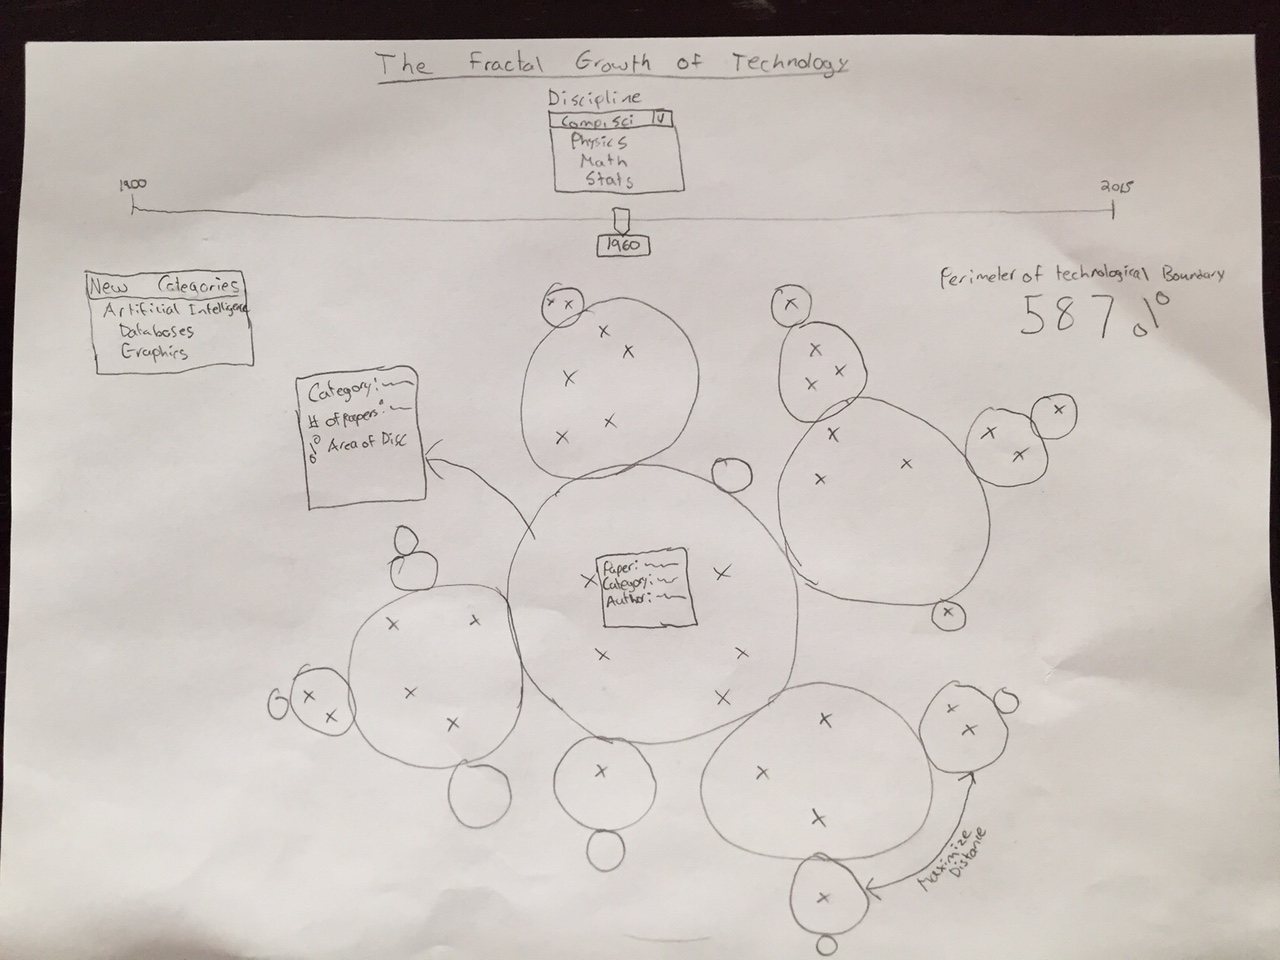 The Fractal Growth of Technology
Discipline
Comp. Sci
Physics
Math
Stats
1900
2015
1960
New Categories
Artificial Intelligence
Databases
Graphics
Perimeter of technological Boundary
587%
Category:
# of Papers:
% Area of Disc
Paper:
Category:
Author:
Maximize
Distance